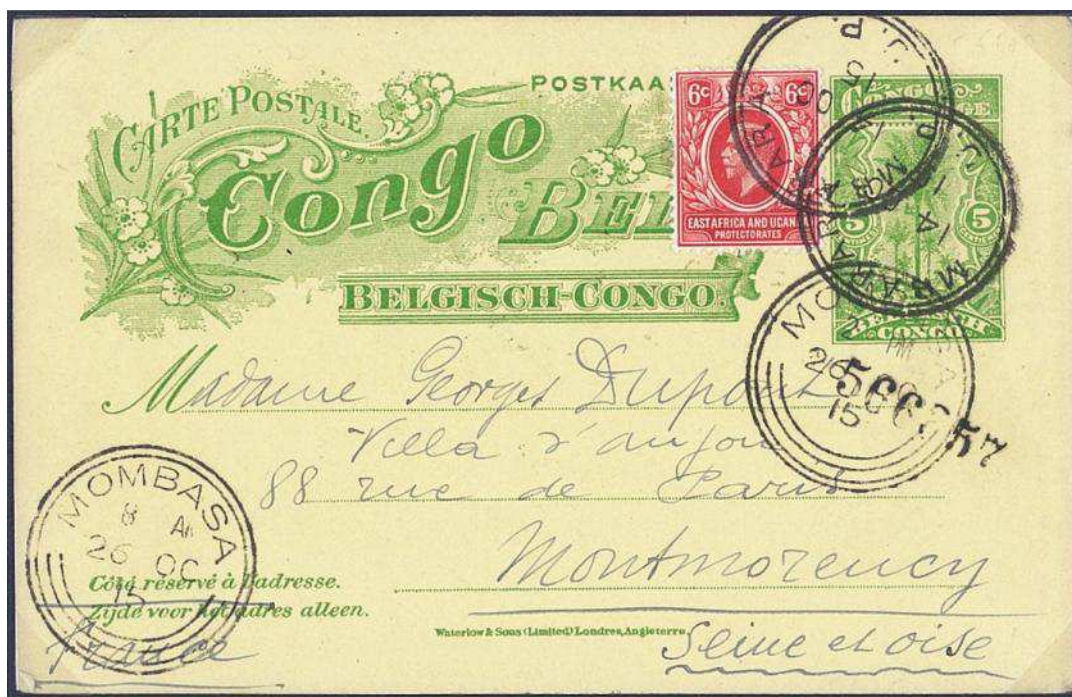 CARTE POSTALE.
POSTKAA
Congo
BEL
BELGISCH-CONGO.
6c 6c
EAST AFRICA AND UGAN
PROTECTORATES
CONGO
5 5
CONGO
MBARARA
14
MBARARA
15
MOMBASA
26
15
Madame Georges Dupont
Villa d'anjou
88 rue de Paris
Montmorency
Seine et oise
MOMBASA
8 AM
26 OC
15
Côté réservé à l'adresse.
Zijde voor het adres alleen.
Waterlow & Sons (Limited) Londres, Angleterre
France